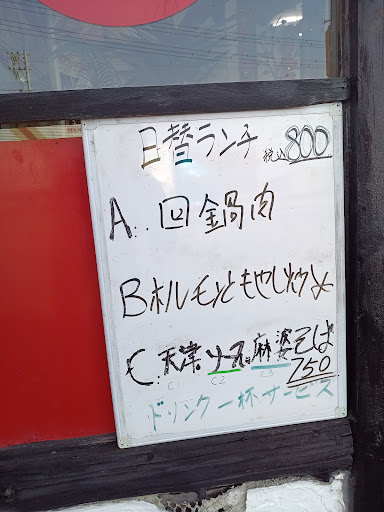 日替ランチ 税込800
A.. 回鍋肉
Bホルモンともやし炒め
C. 天津 ソース 麻婆そば
C1 C2 C3 750
ドリンク一杯サービス